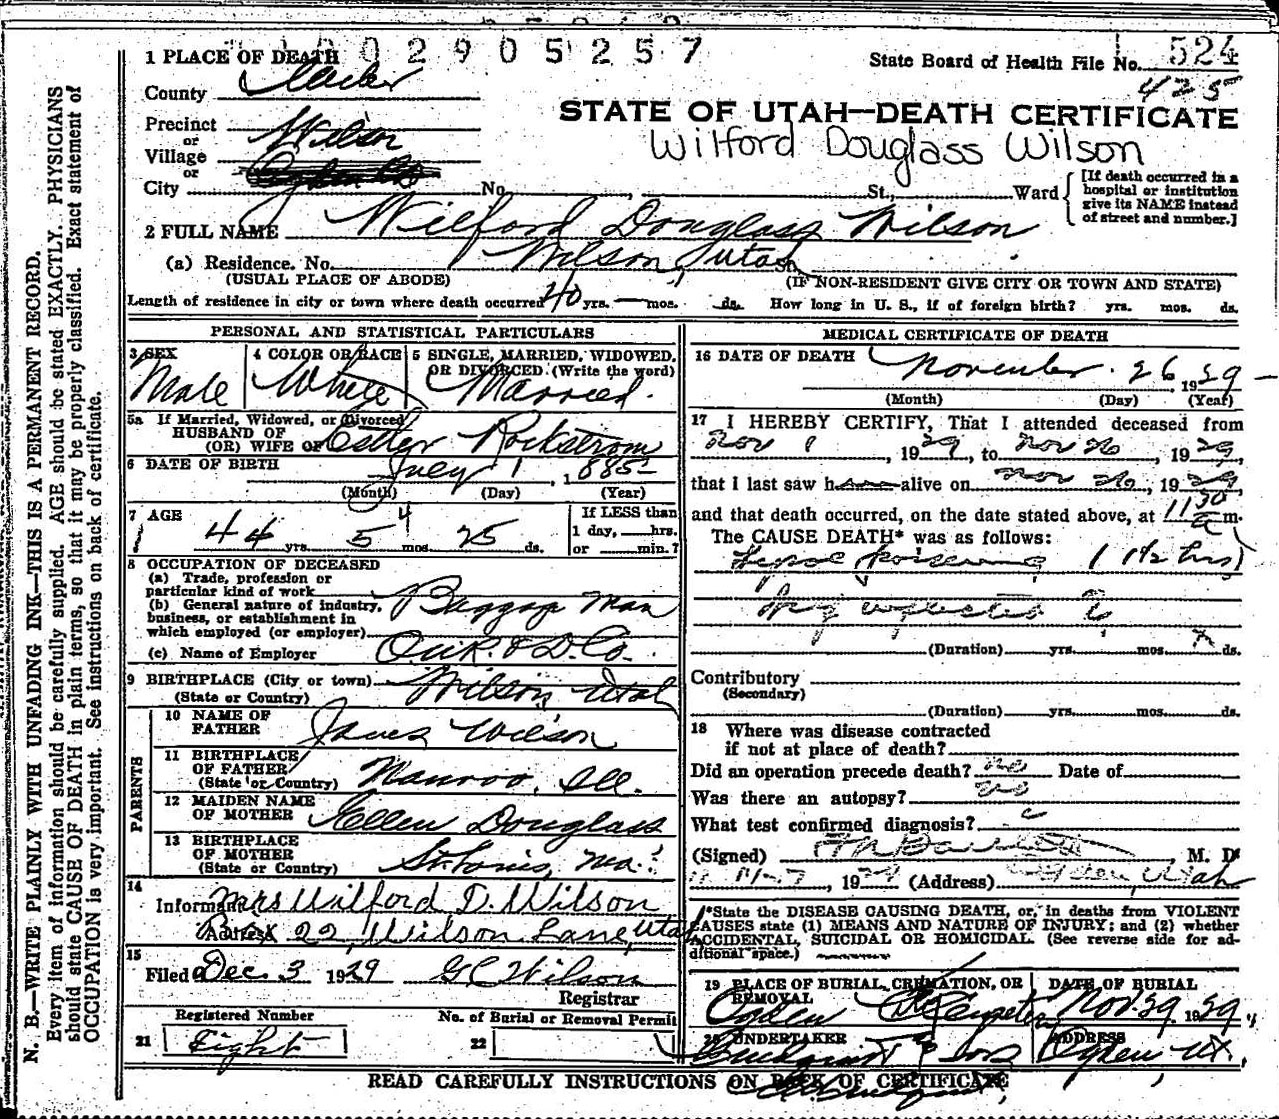 1 0 0 2 9 0 5 2 5 7
1 PLACE OF DEATH
State Board of Health File No. 524
425
County Weber
STATE OF UTAH—DEATH CERTIFICATE
Precinct
or
Wilson
Wilford Douglass Wilson
Village
or
City No. St., Ward
[If death occurred in a hospital or institution give its NAME instead of street and number.]
2 FULL NAME Wilford Douglass Wilson
(a) Residence. No. Wilson, Utah St.
(USUAL PLACE OF ABODE) (IF NON-RESIDENT GIVE CITY OR TOWN AND STATE)
Length of residence in city or town where death occurred 40 yrs. — mos. ds. How long in U. S., if of foreign birth? yrs. mos. ds.
PERSONAL AND STATISTICAL PARTICULARS
3 SEX Male
4 COLOR OR RACE White
5 SINGLE, MARRIED, WIDOWED, OR DIVORCED. (Write the word) Married.
5a If Married, Widowed, or Divorced
HUSBAND OF
(OR) WIFE OF Esther Rockstrom
6 DATE OF BIRTH July 1, 1885
(Month) (Day) (Year)
7 AGE 44 yrs. 5 4 mos. 25 ds.
If LESS than
1 day, hrs.
or min.?
8 OCCUPATION OF DECEASED
(a) Trade, profession or
particular kind of work Baggage Man
(b) General nature of industry,
business, or establishment in
which employed (or employer)
(c) Name of Employer O.U.R. & D. Co.
9 BIRTHPLACE (City or town) Wilson, Utah
(State or Country)
PARENTS
10 NAME OF
FATHER James Wilson
11 BIRTHPLACE
OF FATHER
(State or Country) Nauvoo, Ill.
12 MAIDEN NAME
OF MOTHER Ellen Douglass
13 BIRTHPLACE
OF MOTHER
(State or Country) St. Louis, Mo.
14
Informant Mrs Wilford D. Wilson
Address Box 22, Wilson Lane, Utah
15
Filed Dec. 3 1929 G C Wilson
Registrar
Registered Number No. of Burial or Removal Permit
21 Eight 22
MEDICAL CERTIFICATE OF DEATH
16 DATE OF DEATH November 26 1929
(Month) (Day) (Year)
17 I HEREBY CERTIFY, That I attended deceased from
Nov 1, 1929, to Nov 26, 1929,
that I last saw h alive on Nov 26, 1929
and that death occurred, on the date stated above, at 11 30 a m.
The CAUSE DEATH* was as follows:
poisoning (1 1/2 hrs)
(Duration) yrs. mos. ds.
Contributory
(Secondary)
(Duration) yrs. mos. ds.
18 Where was disease contracted
if not at place of death?
Did an operation precede death? no Date of
Was there an autopsy? no
What test confirmed diagnosis?
(Signed) , M. D.
, 1929 (Address) Ogden, Utah
*State the DISEASE CAUSING DEATH, or, in deaths from VIOLENT
CAUSES state (1) MEANS AND NATURE OF INJURY; and (2) whether
ACCIDENTAL, SUICIDAL OR HOMICIDAL. (See reverse side for ad-
ditional space.)
19 PLACE OF BURIAL, CREMATION, OR
REMOVAL Ogden
DATE OF BURIAL
Nov 29, 1929,
20 UNDERTAKER & Sons
ADDRESS Ogden, Ut.
READ CAREFULLY INSTRUCTIONS ON BACK OF CERTIFICATE
N. B.—WRITE PLAINLY WITH UNFADING INK—THIS IS A PERMANENT RECORD.
Every item of information should be carefully supplied. AGE should be stated EXACTLY. PHYSICIANS
should state CAUSE OF DEATH in plain terms, so that it may be properly classified. Exact statement of
OCCUPATION is very important. See instructions on back of certificate.